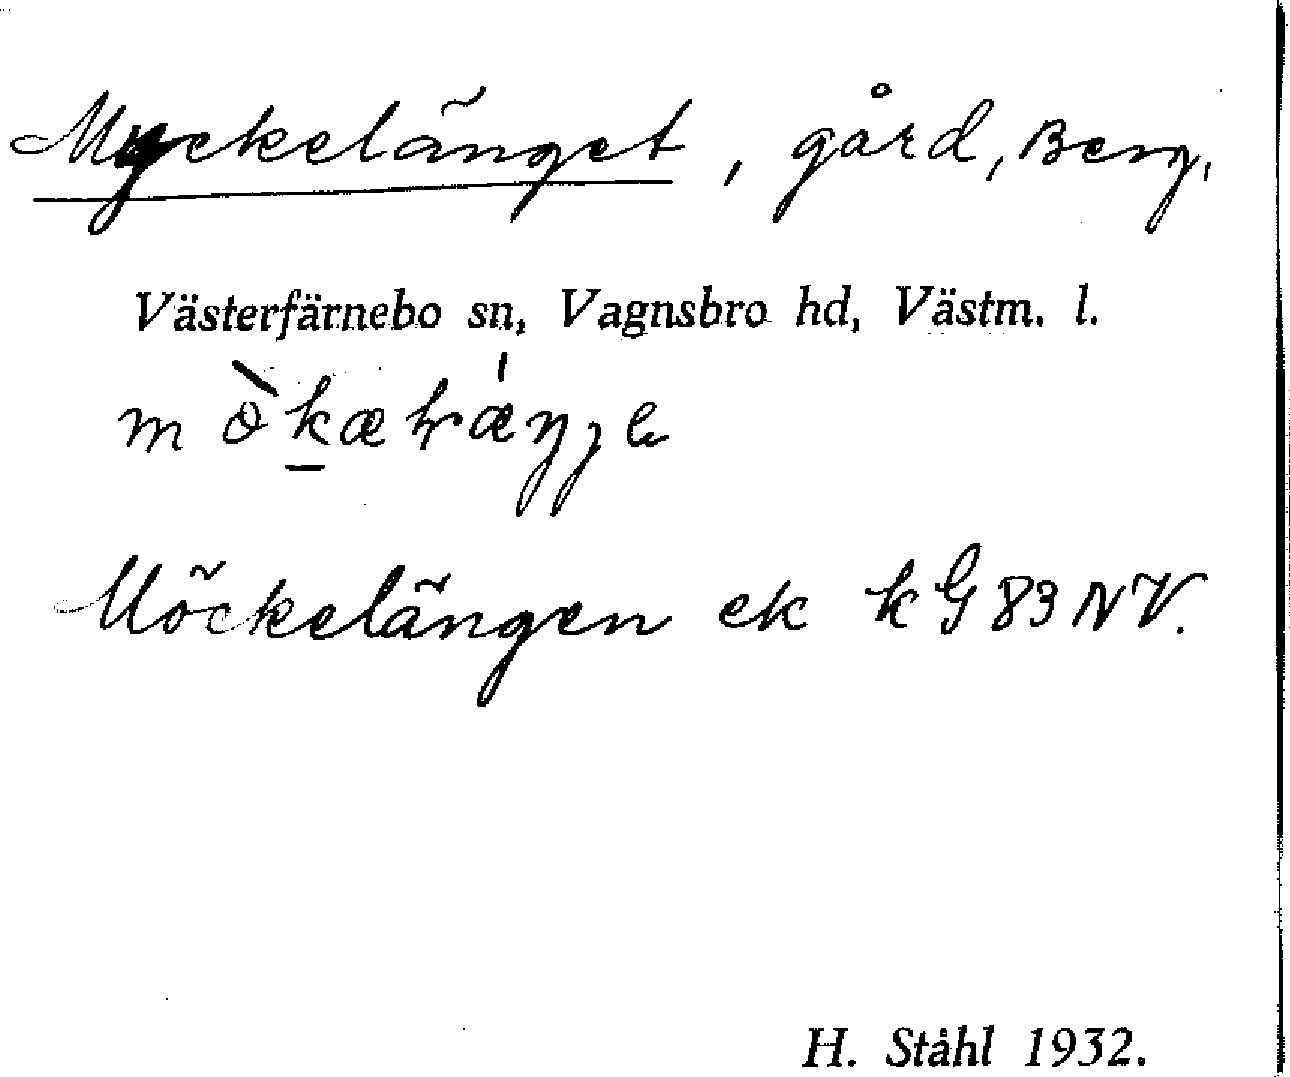 Myckelänget, gård, Berg,
Västerfärnebo sn, Vagnsbro hd, Västm. l.
Möckelängen ek kG 83 NV.
H. Ståhl 1932.